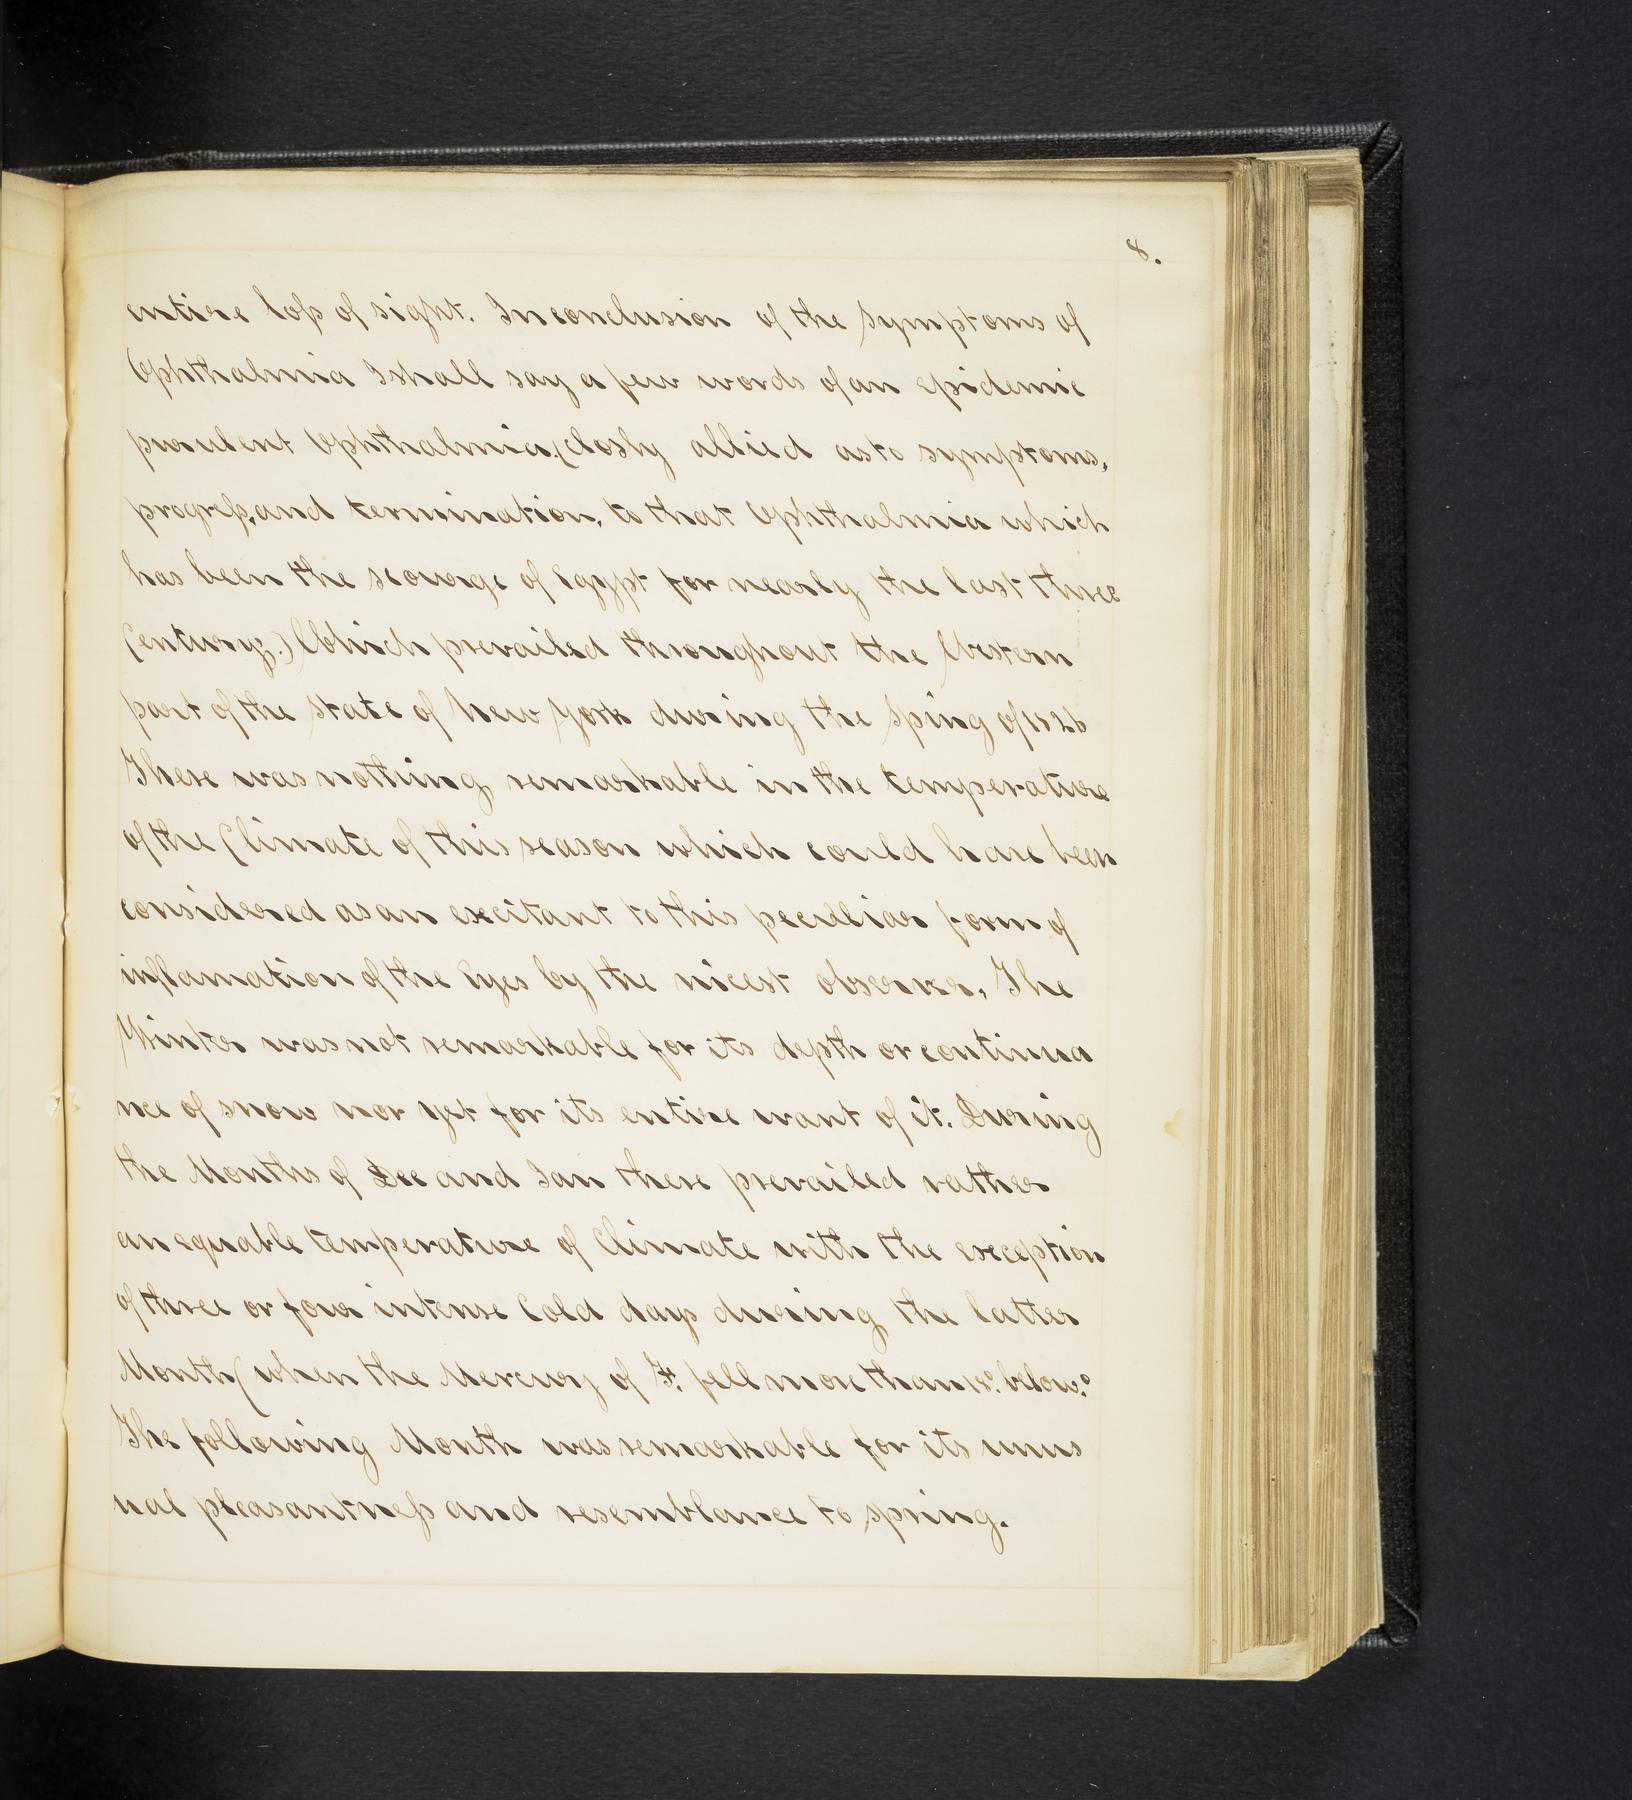 8.
entire loſs of sight. In conclusion of the Symptoms of
Ophthalmia I shall say a few words of an epidemic
purulent Ophthalmia, (closly allied as to symptoms,
progreſs, and termination, to that Ophthalmia which
has been the scourge of Egypt for nearly the last three
Century.) Which prevailed throughout the Western
part of the State of New York during the Sping of 1826
There was nothing remarkable in the temperature
of the Climate of this season which could have been
considered as an excitant to this peculiar form of
inflamation of the Eyes by the nicest observer, The
Winter was not remarkable for its depth or continua
nce of snow nor yet for its entire want of it. During
the Months of Dec and Jan there prevailed rather
an equable temperature of Climate with the exception
of three or four intense Cold days during the latter
Month (when the Mercury of F. fell more than 18° below °
The following Month was remarkable for its unus
ual pleasantneſs and resemblance to spring.